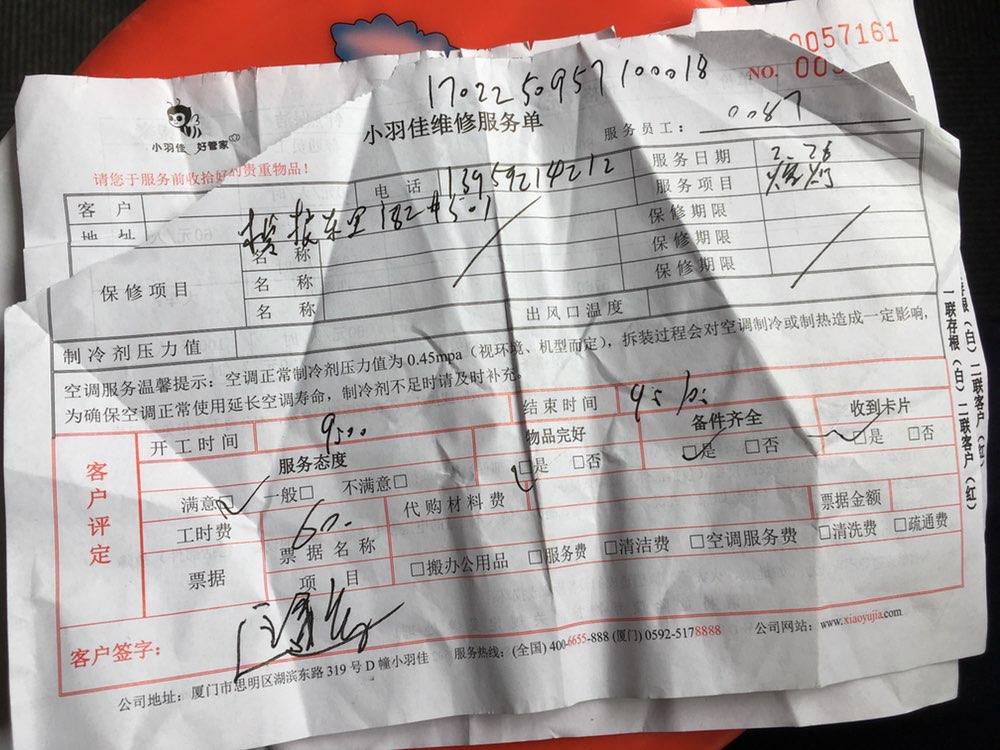 0057161
NO. 00
1702250957100018
小羽佳 好管家
小羽佳维修服务单
服务员工： 0087
请您于服务前收拾好的贵重物品！
客 户
电 话 13959214212
服务日期 2.26
地 址 东里182#501
服务项目
保修项目
名 称
保修期限
名 称
保修期限
名 称
保修期限
制冷剂压力值
出风口温度
空调服务温馨提示：空调正常制冷剂压力值为 0.45mpa（视环境、机型而定），拆装过程会对空调制冷或制热造成一定影响，
为确保空调正常使用延长空调寿命，制冷剂不足时请及时补充。
客户评定
开工时间
结束时间
服务态度
物品完好
备件齐全
收到卡片
满意□ 一般□ 不满意□
□是 □否
□是 □否
□是 □否
工时费 60.
代购材料费
票据金额
票据
票据名称
项 目
□搬办公用品 □服务费 □清洁费 □空调服务费 □清洗费 □疏通费
客户签字：
公司地址：厦门市思明区湖滨东路 319 号 D 幢小羽佳
服务热线：(全国) 400-6655-888 (厦门) 0592-5178888
公司网站：www.xiaoyujia.com
一联存根（白）二联客户（红）